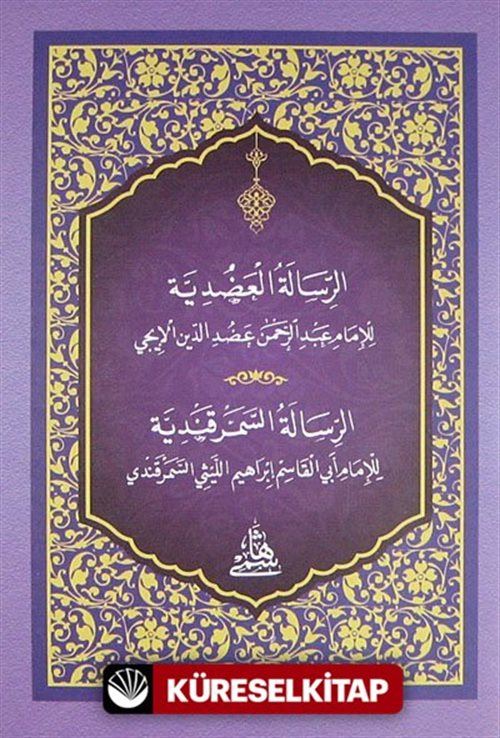 الرِّسَالَةُ الْعَضُدِيَّة
لِلْإِمَامِ عَبْدِ الرَّحْمٰنِ عَضُدِ الدِّينِ الْإِيجِي
الرِّسَالَةُ السَّمَرْقَنْدِيَّة
لِلْإِمَامِ أَبِي الْقَاسِمِ إِبْرَاهِيمَ اللَّيْثِي السَّمَرْقَنْدِي
هاشمي
KÜRESELKİTAP